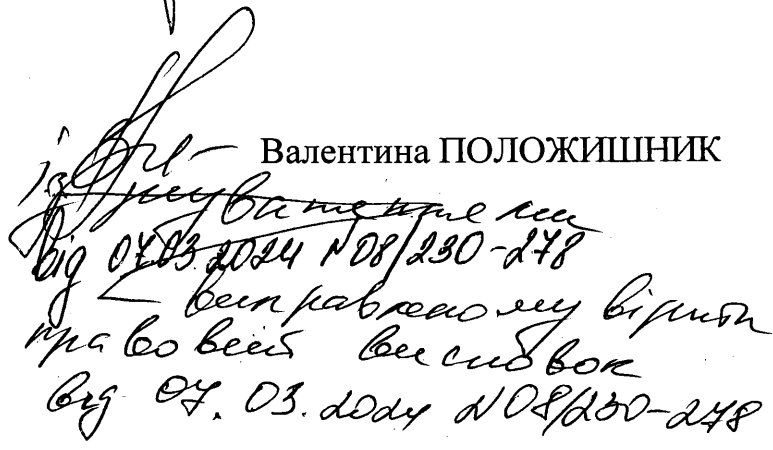 Валентина ПОЛОЖИШНИК
із
зауваженнями
від 07.03.2024 №08/230-278
виправленому вірити
правовий висновок
від 07.03.2024 №08/230-278